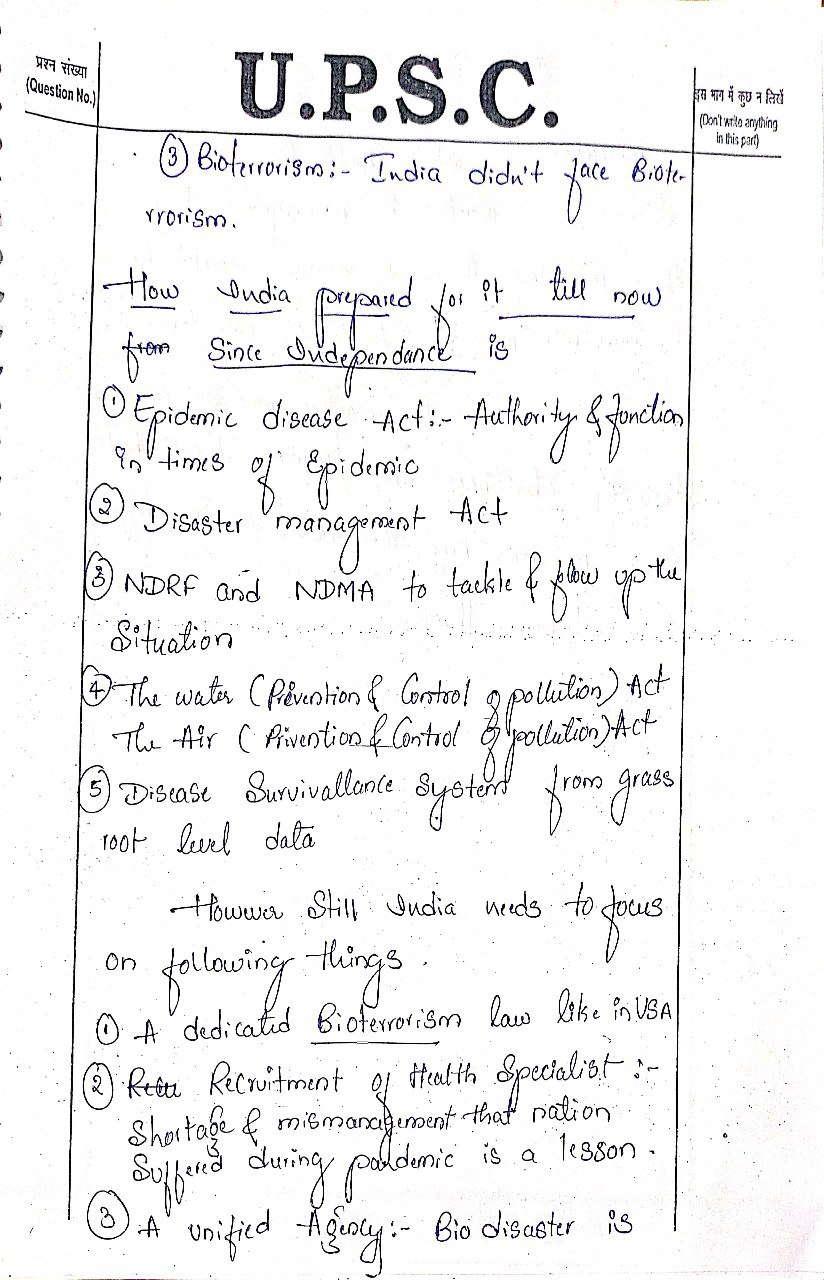 प्रश्न संख्या
(Question No.)
U.P.S.C.
इस भाग में कुछ न लिखें
(Don't write anything
in this part)
③ Bioterrorism:- India didn't face Biote-
rrorism.
How India prepared for it till now
from Since Independance is
① Epidemic disease Act:- Authority & function
In times of Epidemic
② Disaster management Act
③ NDRF and NDMA to tackle & flow up the
Situation
④ The water (Prevention & Control of pollution) Act
The Air (Privention & Control of pollution) Act
⑤ Disease Survivallance System from grass
root level data
However Still India needs to focus
on following things.
① A dedicated Bioterrorism law like in USA
② Recruitment of Health Specialist :-
Shortage & mismanagement that nation
Suffered during pandemic is a lesson.
③ A unified Agency:- Bio disaster is